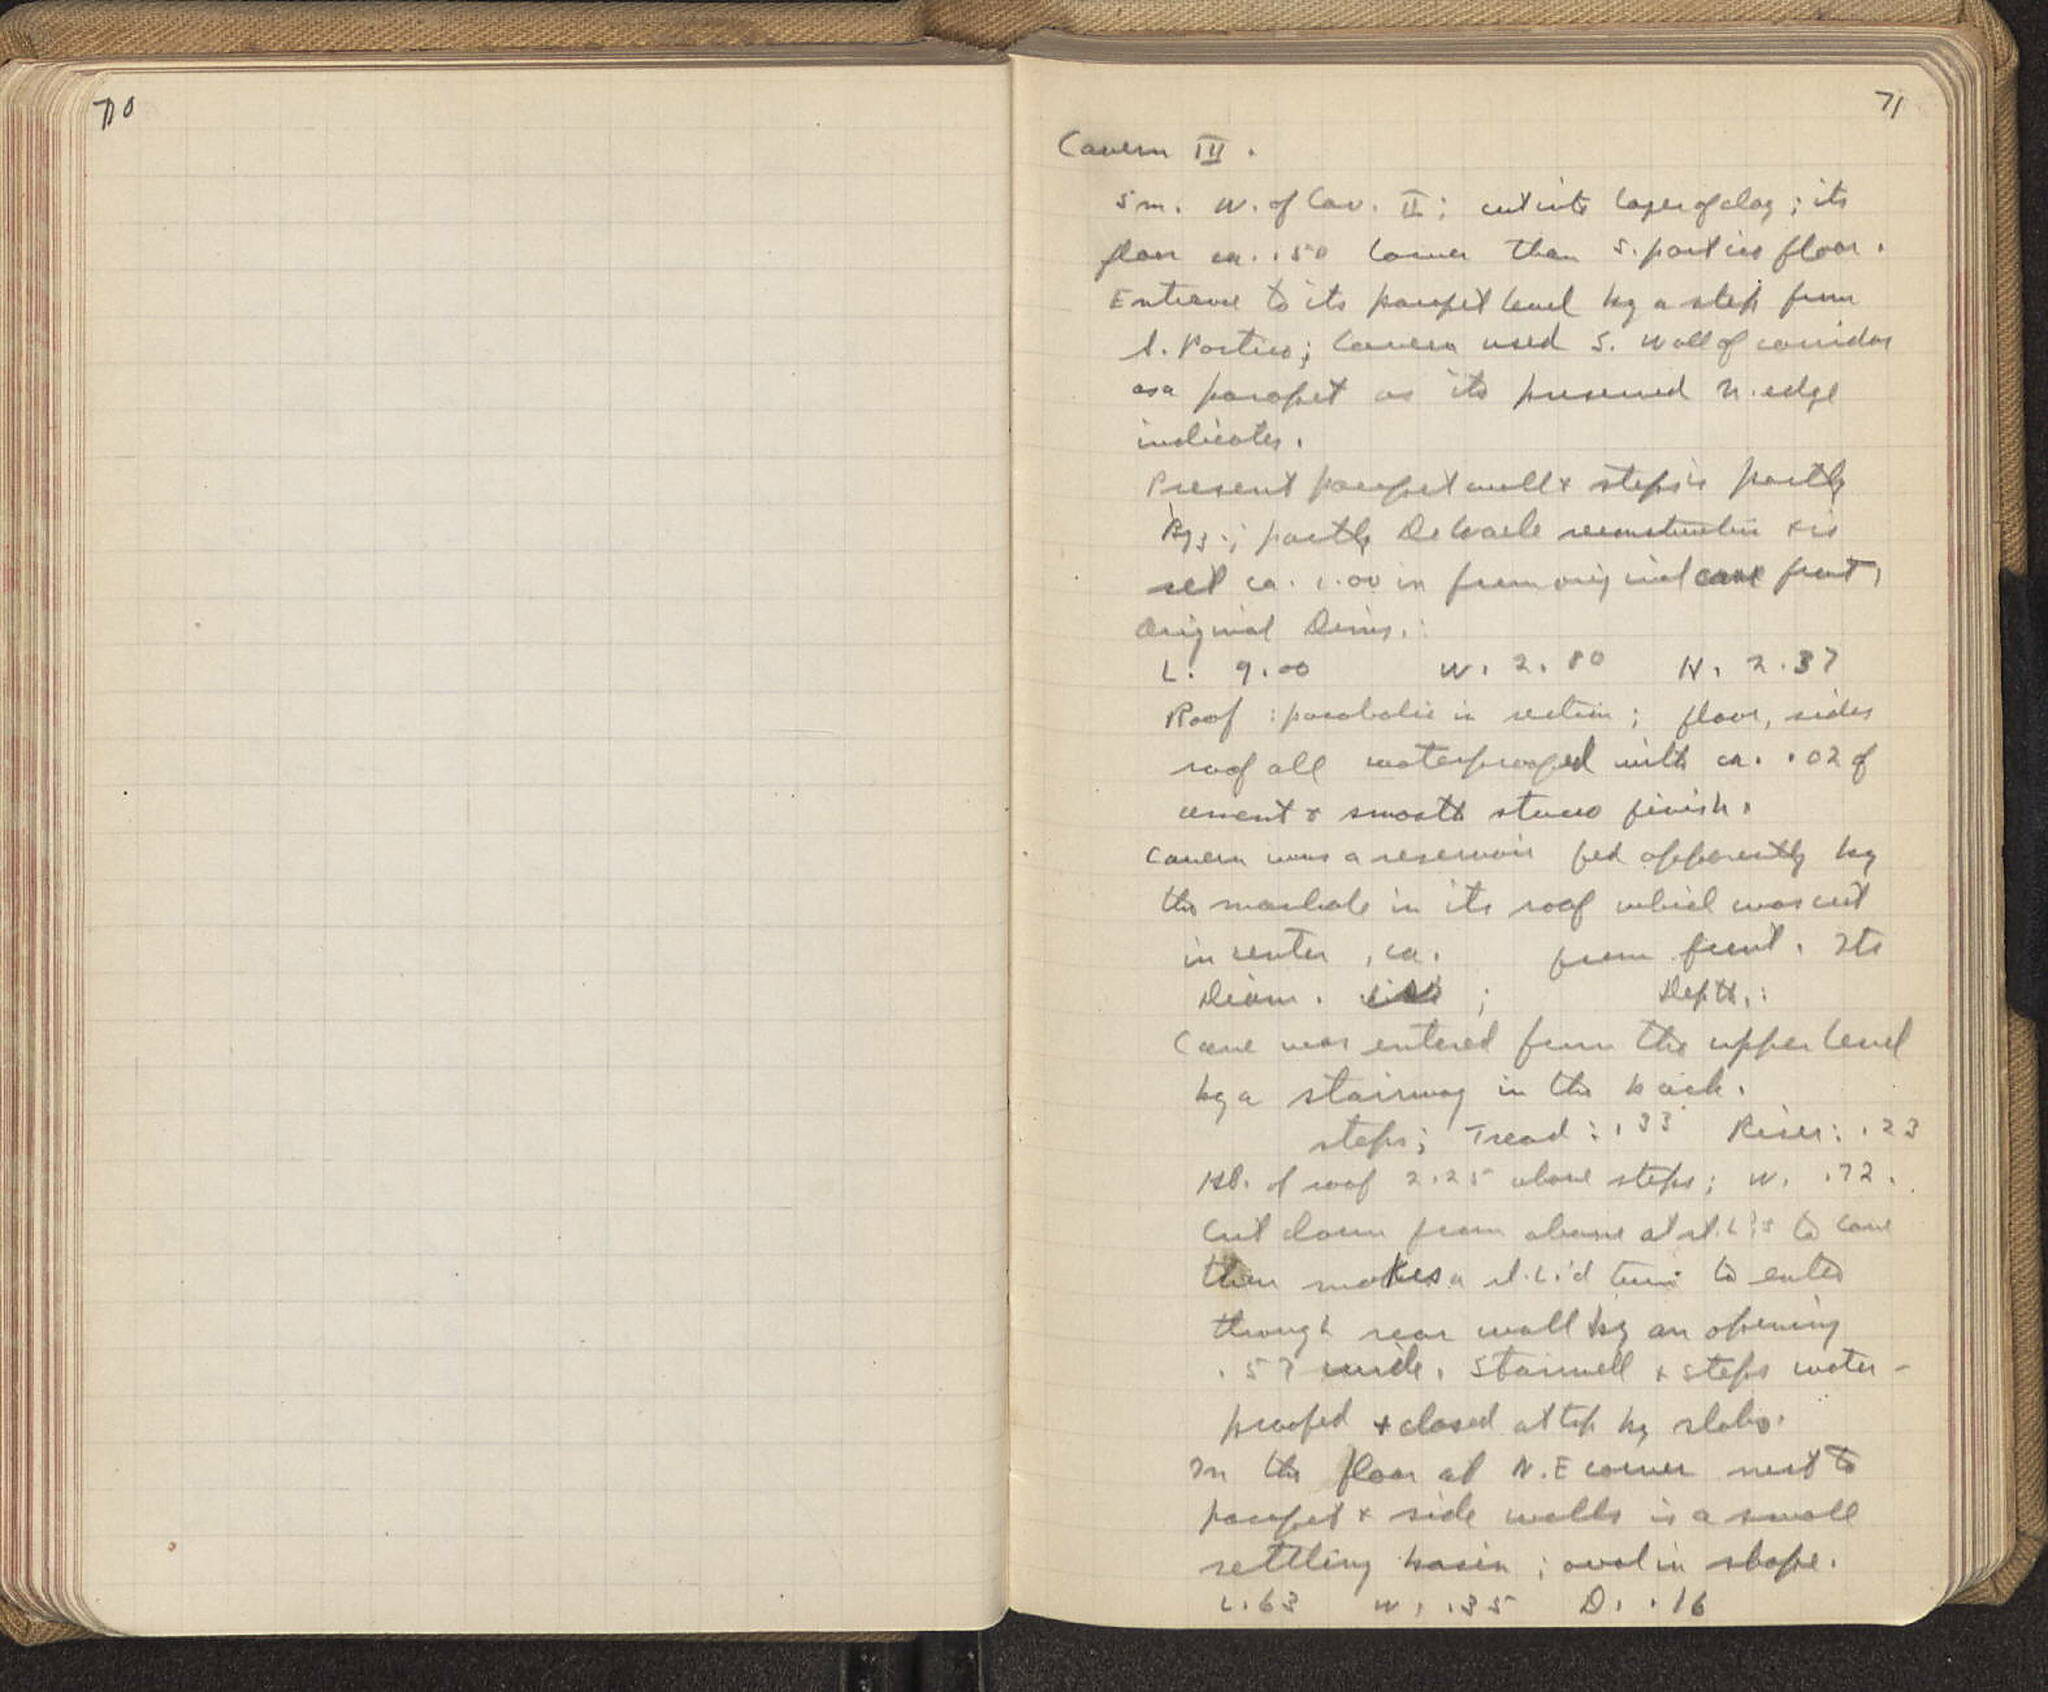 70
71
Cavern III.
5 m. W. of Cav. II; cut into layer of clay; its
floor ca. .50 lower than S. portico floor.
Entrance to its parapet level by a step from
S. Portico; Cavern used S. wall of corridor
as a parapet as its preserved N. edge
indicates.
Present parapet wall & steps is partly
Byz.; partly De Waele reconstruction & is
set ca. 1.00 in from original cave front,
Original Dims.:
L. 9.00 W. 2.80 H. 2.37
Roof: parabolic in section; floor, sides
roof all waterproofed with ca. .02 of
cement & smooth stucco finish.
Cavern was a reservoir fed apparently by
the manhole in its roof which was cut
in center, ca. from front. Its
Diam. ; Depth.:
Cave was entered from the upper level
by a stairway in the back.
steps; Tread: .33 Riser: .23
Ht. of roof 2.25 above steps; W. .72.
Cut down from above at rt. L's to cave
then makes a rt. L'd turn to enter
through rear wall by an opening
.57 wide. Stairwell & steps water-
proofed & closed at top by slabs.
In the floor at N.E corner next to
parapet & side walls is a small
settling basin; oval in shape.
L .63 W. .35 D. .16